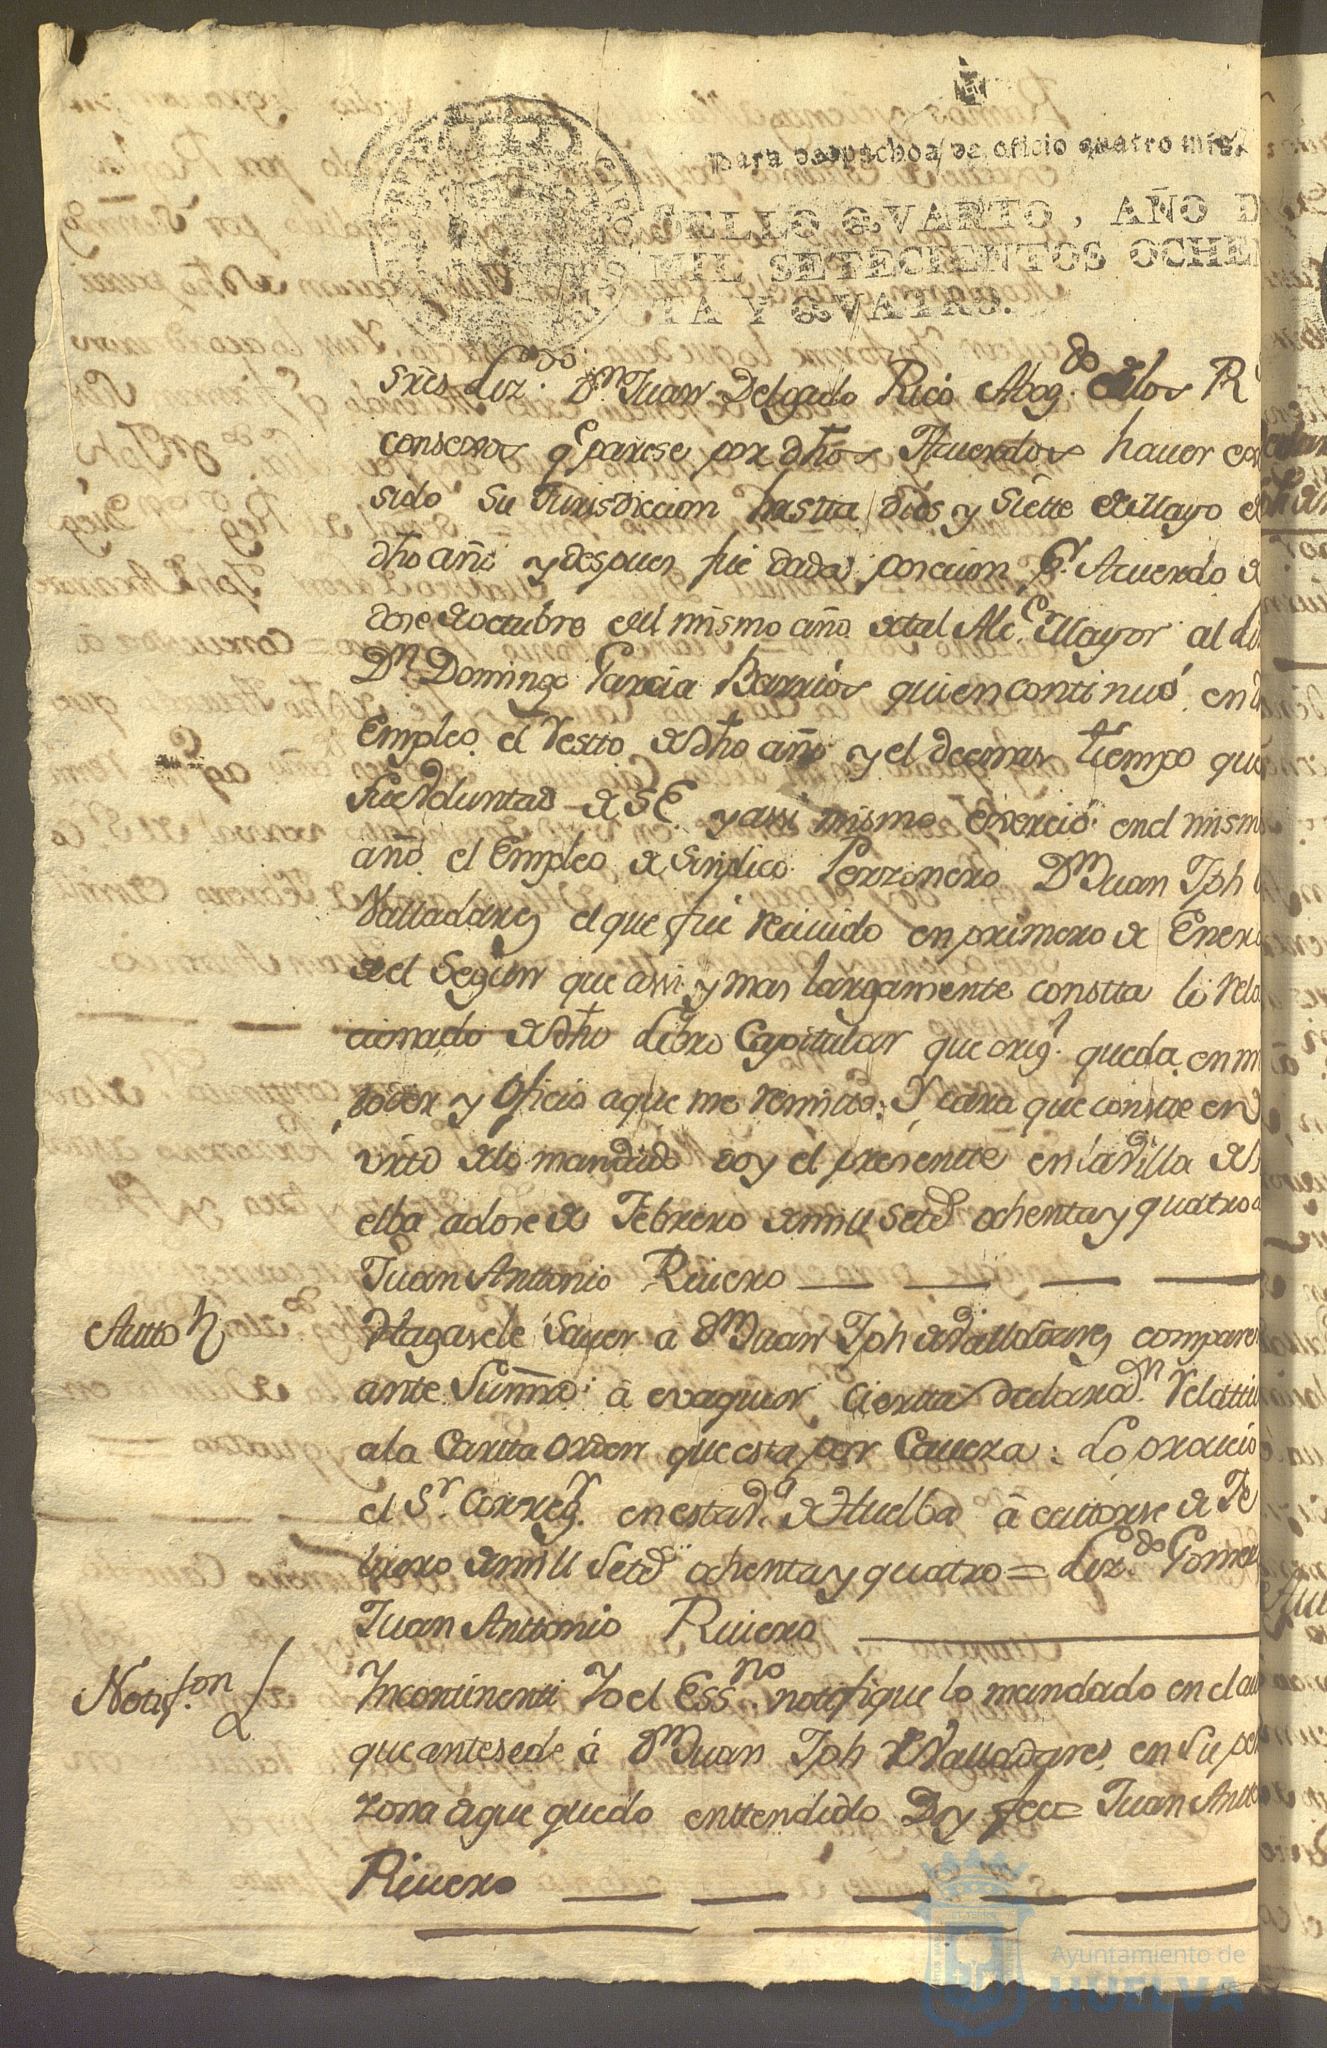 para despachos de oficio quatro mrs.
SELLO QVARTO, AÑO D
MIL SETECIENTOS OCHEN
TA Y QVATRO.
sres Liz.do Dn. Juan Delgado Rico Abog.do de los R
consexos qe parese por dhos Acuerdos hauer exer
sido su Jurisdiccion hastta dies y Siette de Mayo de
dho año y despues fue dada posecion pr. Acuerdo de
dose de octubre del mismo año de tal Alce. Mayor al Liz
Dn. Domingo Garcia Barrios quien continuó en
Empleo el Restto de dho año y el demas tiempo que
fue Voluntad de S.E. y assi mismo exerció en el mismo
año el Empleo de Sindico Perzonero Dn. Juan Jph
Valladares el que fue reciuido en primero de Enero
de el Segun que assi y mas largamente constta lo rela
cionado de dho Libro Capitular que orig.l queda en mi
poder y oficio a que me remito; Y para que conste en
virtd. de lo mandado doy el presentte en la Villa de
elba a dose de Febrero de mill setes. ochenta y quatro a
Juan Anttonio Riuero
Autto
Hagasele Sauer a Dn. Juan Jph de Valladares compare
ante Su mrd. á evaquar cierta declaraon. relatti
a la Cartta orden que esta por Caueza: Lo proueió
el Sr. Correg.r en esta Va. de Huelba á cattorse de Fe
brero de mill Setes. ochenta y quatro = Lizdo. Gomez
Juan Anttonio Riuero
Notif.on
Incontinenti Yo el Essno. notifique lo mandado en el au
que antesede á Dn. Juan Jph de Valladares en su per
zona de que quedo enttendido Doy fee = Juan Antto
Riuero
Ayuntamiento de
HUELVA